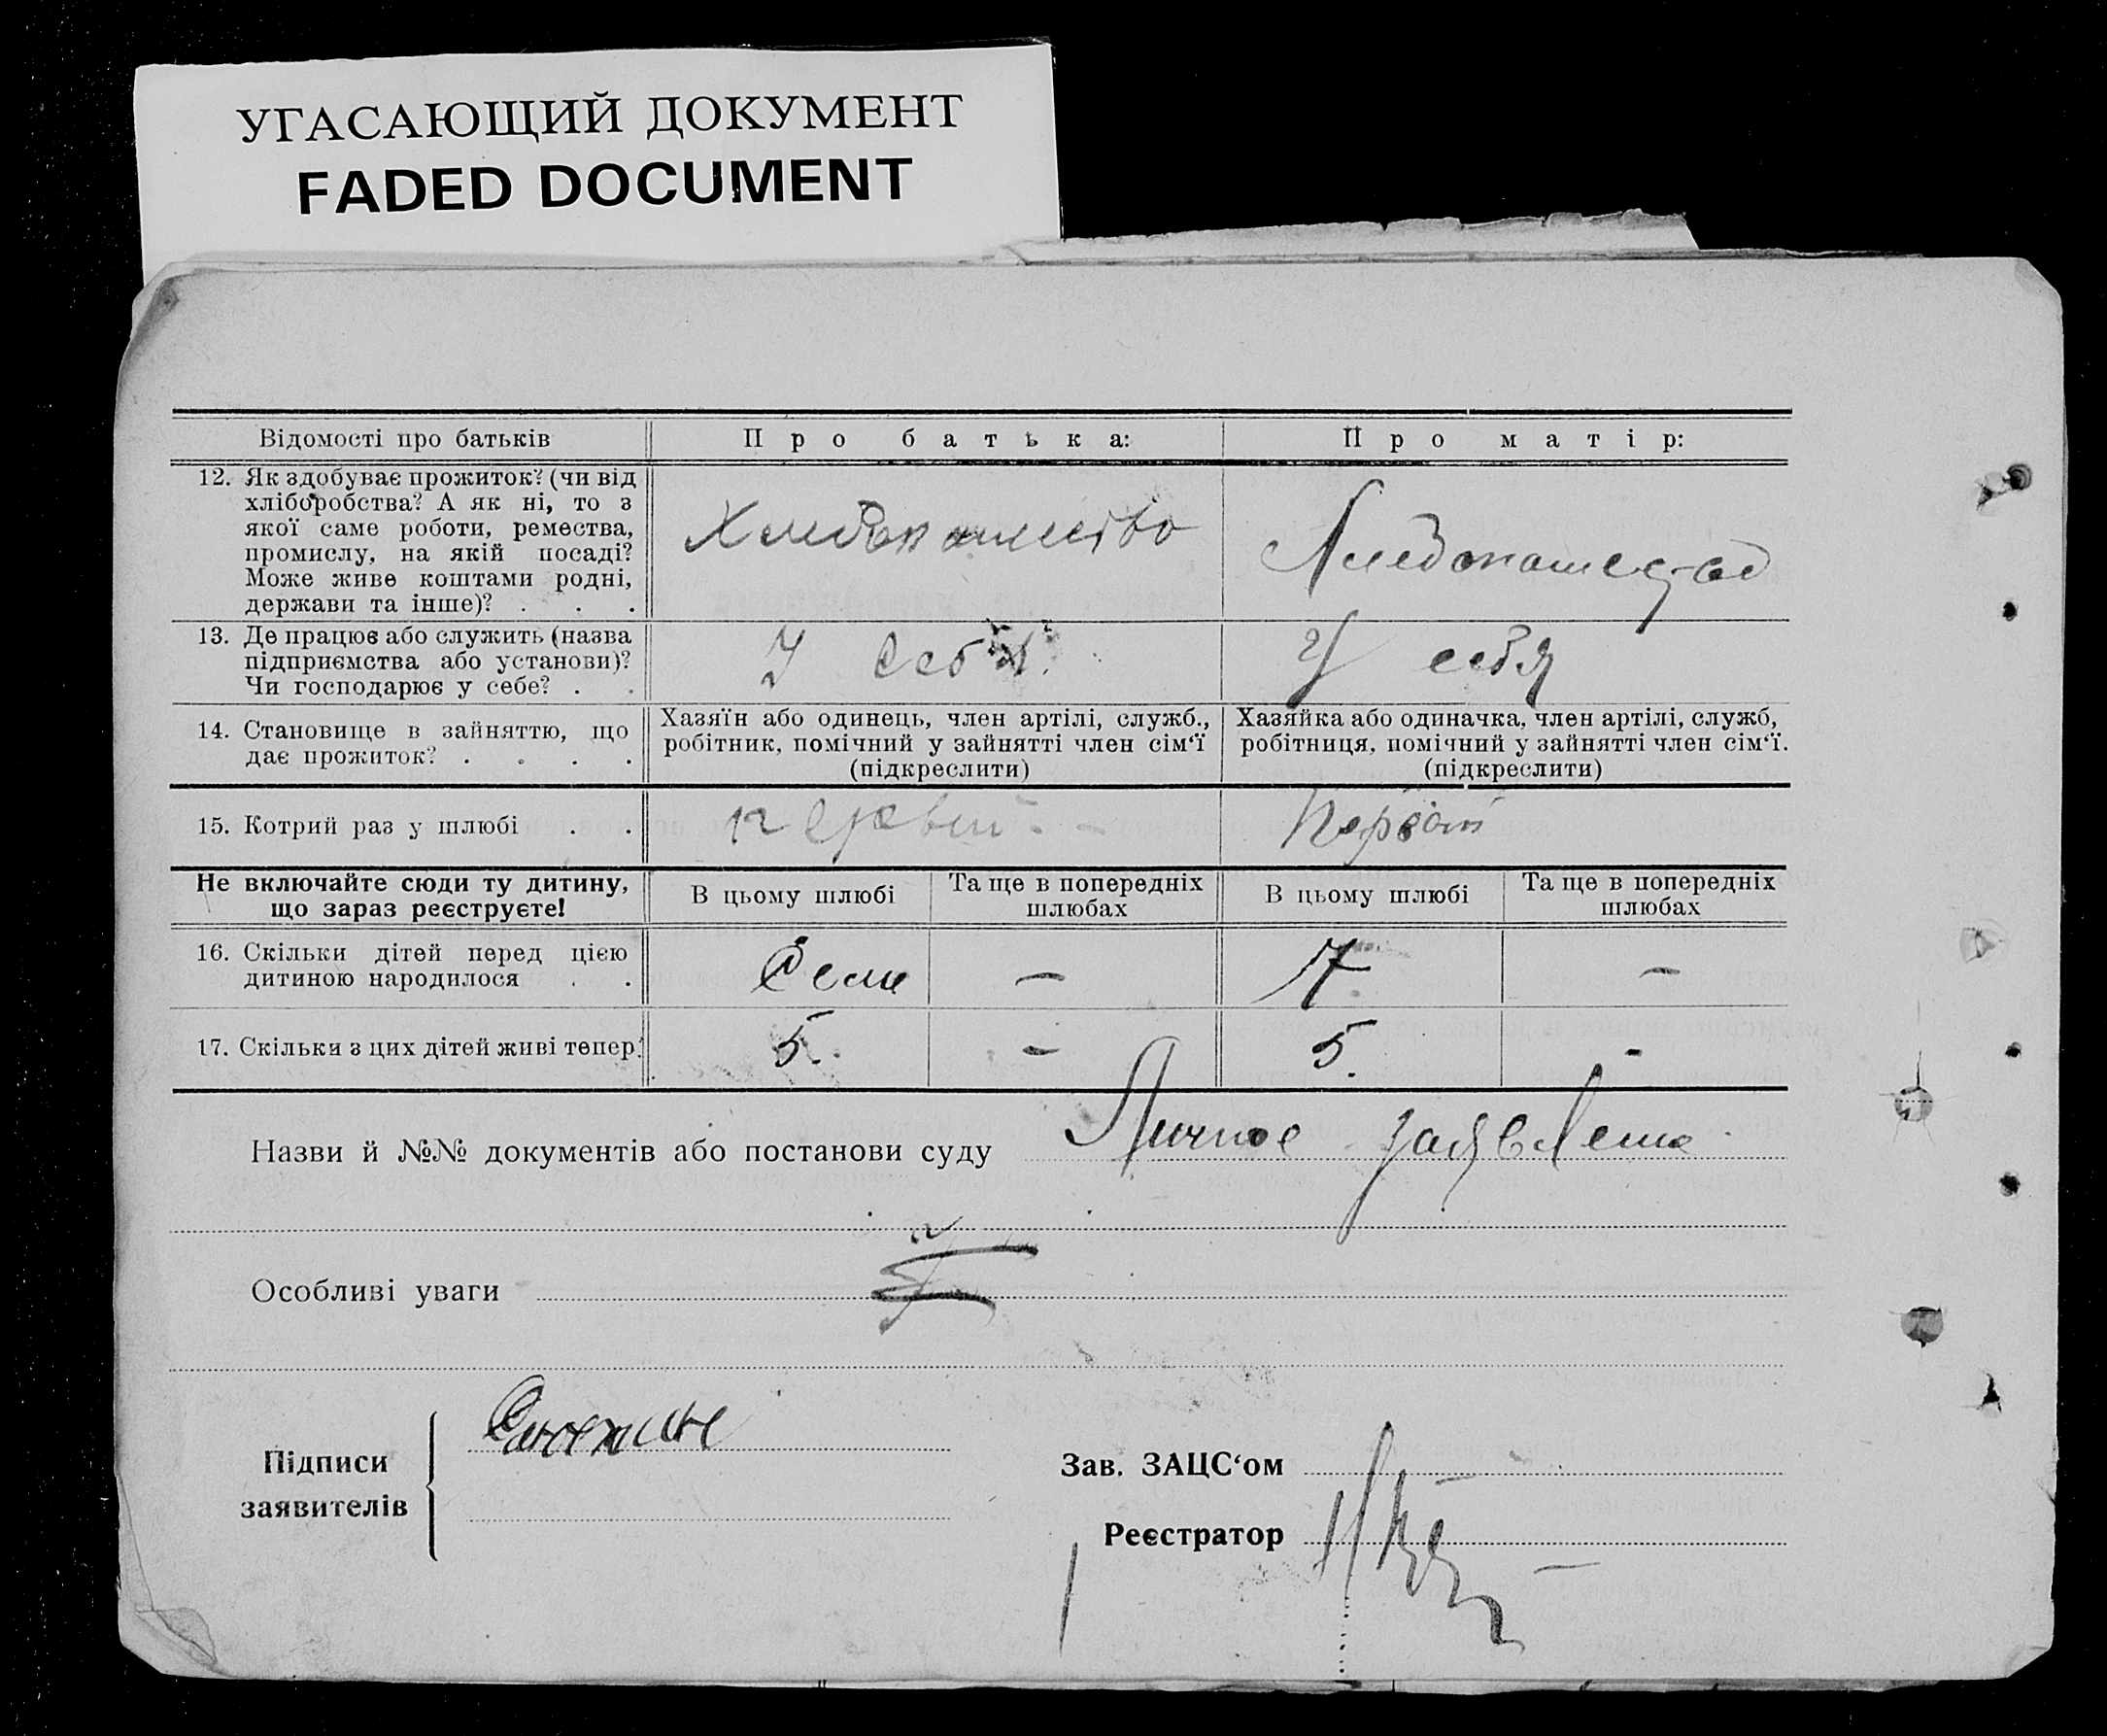 УГАСАЮЩИЙ ДОКУМЕНТ
FADED DOCUMENT
Відомості про батьків
Про батька:
Про матір:
12. Як здобуває прожиток? (чи від
хліборобства? А як ні, то з
якої саме роботи, ремества,
промислу, на якій посаді?
Може живе коштами родні,
держави та інше)? . . .
Хлебопашество
Хлебопашество
13. Де працює або служить (назва
підприємства або установи)?
Чи господарює у себе? . .
У себя
У себя
14. Становище в зайняттю, що
дає прожиток? . . . .
Хазяїн або одинець, член артілі, служб.,
робітник, помічний у зайнятті член сім‘ї
(підкреслити)
Хазяйка або одиначка, член артілі, служб,
робітниця, помічний у зайнятті член сім‘ї.
(підкреслити)
15. Котрий раз у шлюбі . .
первый
Первый
Не включайте сюди ту дитину,
що зараз реєструєте!
В цьому шлюбі
Та ще в попередніх
шлюбах
В цьому шлюбі
Та ще в попередніх
шлюбах
16. Скільки дітей перед цією
дитиною народилося . .
Семь
—
7
—
17. Скільки з цих дітей живі тепер.
5.
—
5.
-
Назви й №№ документів або постанови суду
Личное заявление
Особливі уваги
Підписи
заявителів
Зав. ЗАЦС‘ом
Реєстратор